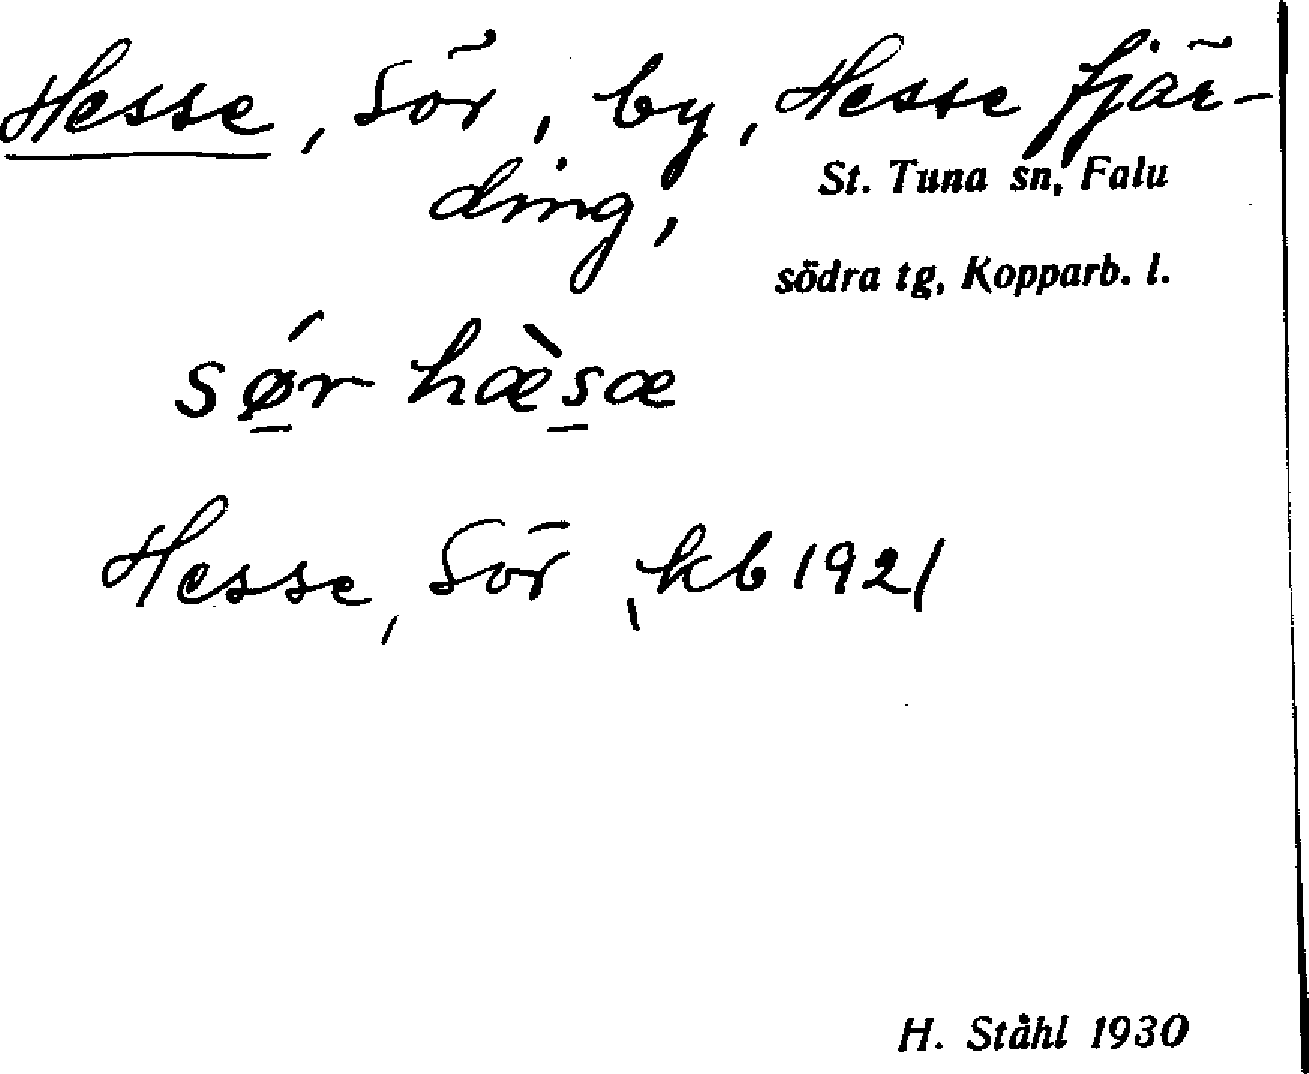 Hesse, Sör, by, Hesse fjär-
ding,
St. Tuna sn, Falu
södra tg, Kopparb. l.
sǿ̱r hæ̀s̱æ
Hesse, Sör, kb 1921
H. Ståhl 1930